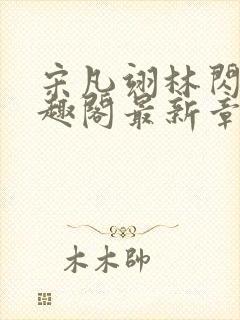 宋凡翊林閃
趣閣最新章
木木帥